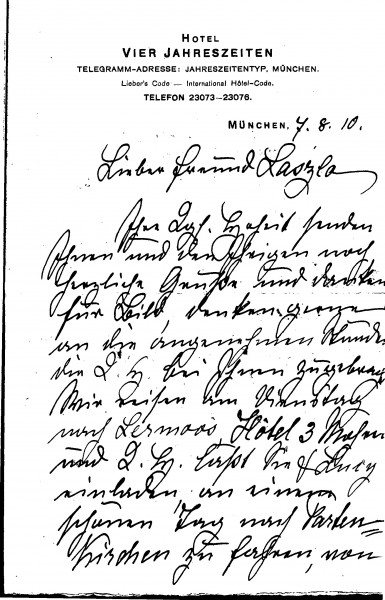 HOTEL
VIER JAHRESZEITEN
TELEGRAMM-ADRESSE: JAHRESZEITENTYP, MÜNCHEN.
Lieber's Code — International Hôtel-Code.
TELEFON 23073–23076.
MÜNCHEN, 7. 8. 10.
Lieber Freund Laszlo
Ihre Kgl. Hoheit senden
Ihnen und den Ihrigen noch
herzliche Grüße und danken
für Bild, denken gerne
an die angenehmen Stunden
die I. H. bei Ihnen zugebrac
Wir reisen am Dienstag
nach Lermoos, Hôtel 3 Mohren
und I. H. läßt Sie & Lucy
einladen an einem
schönen Tag nach Parten=
Kirchen zu fahren, von